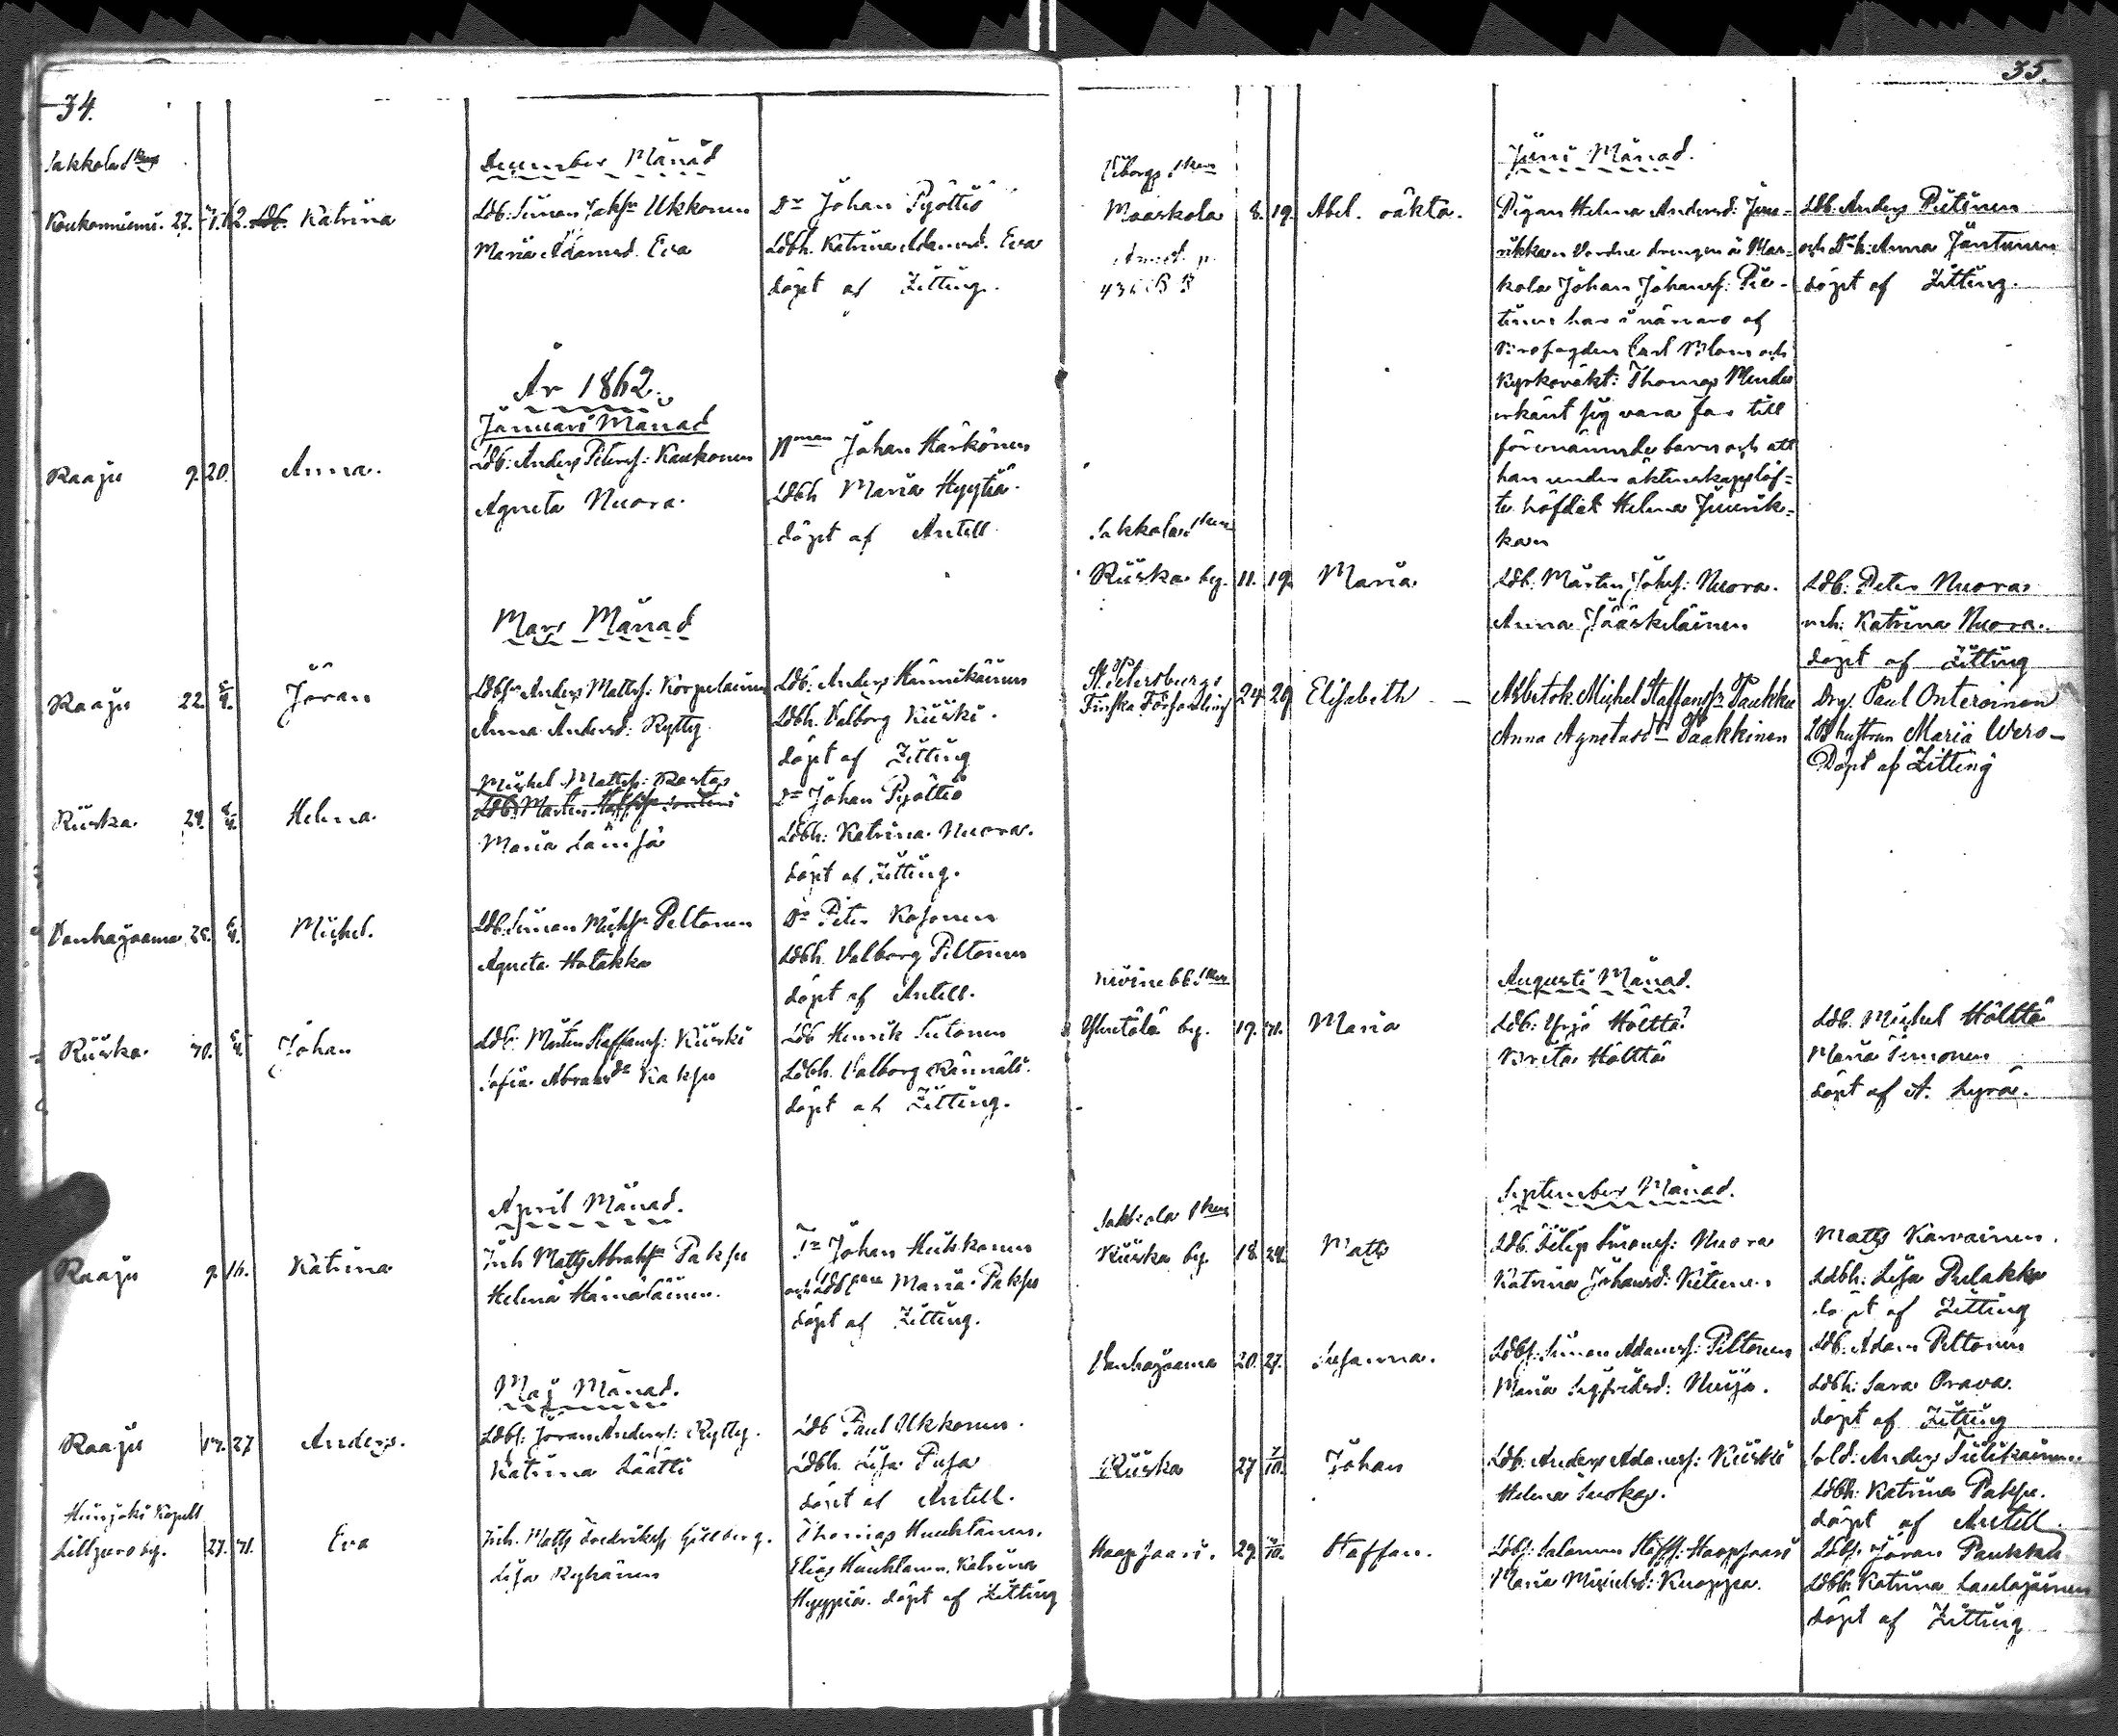 34.
Sakkola Skn
December Månad
Koukonniemi. 27. 1/1.62. Katrina
Ldb. Simon Jaksn Ukkonen
Maria Adamsd. Eva
Dr Johan Pyöttiö
Ldbh. Katrina Adamsd. Eva
döpt af Zitting.
År 1862.
Januari Månad
Raaju 9. 20. Anna.
Ldb: Anders Petersf: Kaukonen
Agneta Nuora.
Johan Härkönen
Ldbh Maria Hyytiä.
döpt af Antell
Mars Månad
Raaju 22. Jöran
Ldbsn Anders Mattsf: Korpelainen
Anna Andersd: Rytty
Ldb: Anders Hännikäinen
Ldbh. Valborg Kiiski.
döpt af Zitting
Riiska. 24. Helena.
Michel Mattsf: Rastas
Maria Länsä
Dr Johan Pyöttiö
Ldbh: Katrina Nuora.
döpt af Zitting.
Vanhajaama Michel.
Ldb. Simon Michsn Peltonen
Agneta Hatakka
Dr Peter Kosonen
Ldbh. Valborg Peltonen
döpt af Antell.
Riiska. Johan
Ldb: Mårten Staffansf: Kiiski
Sofia Abrahdr Kakso
Ldb Henrik Siitonen
Ldbh. Valborg
döpt af Zitting.
April Månad.
Raaju 9. 16. Katrina
Inh Matts Abrahsn Pakso
Helena Hämäläinen.
Johan Huhkonen
Maria Pakso
döpt af Zitting.
Maj Månad.
Raaju 27 Anders.
Ldbs: Jöran Andersf: Rytty.
Katrina Läätti
Ldb Paul Ukkonen.
Ldbh. Lisa Pusa
döpt af Antell.
Heinjoki Kapell
Lillpero by. 27. 31. Eva
Inh. Matts Fredriksf Gillberg.
Lisa Ryhänen
Thomas Huuhtanen.
Elias Huuhtanen. Katrina
Hyyppiä. döpt af Zitting
35.
Viborgs Skn
Juni Månad.
Maaskola 8. 19. Abel. oäkta.
Pigan Helena Andersd:
drengen å Mas-
kola Johan Johansf: Pie-
tinen har i närvaro af
Carl Blom och
Kyrkovakt: Thomas
erkänt sig vara far till
förenämnde barn och att
han under äktenskapslöf-
te häfdat Helena
kan
Ldb. Anders Pietinen
och Dr h. Anna Jantunen
döpt af Zitting.
Sakkola Skn
Riiska by. 11. 19. Maria
Ldb. Mårten Johsf: Nuora.
Anna Jääskeläinen
Ldb: Peter Nuora
och: Katrina Nuora.
döpt af Zitting
St. Petersburgs
Finska Församling 24 29 Elisabeth
Arbetsk. Michel Staffansn Paukku
Anna Agnetasdr Paakkinen
Drg. Paul Onteroinen
Maria Wers-
Döpt af Zitting
Kivinebb Skn
Augusti Månad.
by. 19. 31. Maria
Ldb: Yrjö Hölttä?
Brita Hölttä
Ldb. Michel Hölttä
Maria Simonen
döpt af A. Lyra.
September Månad.
Sakkola Skn
Riiska by. 18. 24. Matts
Ldb. Filip Simonsf: Nuora
Katrina Johansd: Kitunen
Matts Karvainen.
Ldbh: Lisa Pulakka
döpt af Zitting
Vanhajaama 20. 27. Susanna.
Ldbs: Simon Adamsf: Peltonen
Maria Sigfridsd: Nuija.
Ldb. Adam Peltonen
Ldbh: Sara Orava.
döpt af Zitting
Riiska 27 Johan
Ldb: Anders Adamsf: Kiiski
Helena Suokas.
Sold. Anders Tiilikainen
Ldbh: Katrina Pakso.
döpt af Antell.
Haapsaari. 29. Staffan.
Ldbs: Salomon Staffsf: Haapsaari
Maria Michelsd: Kuoppa.
Ldbs. Jöran Paukku
Ldbh: Katrina Laulajainen
döpt af Zitting